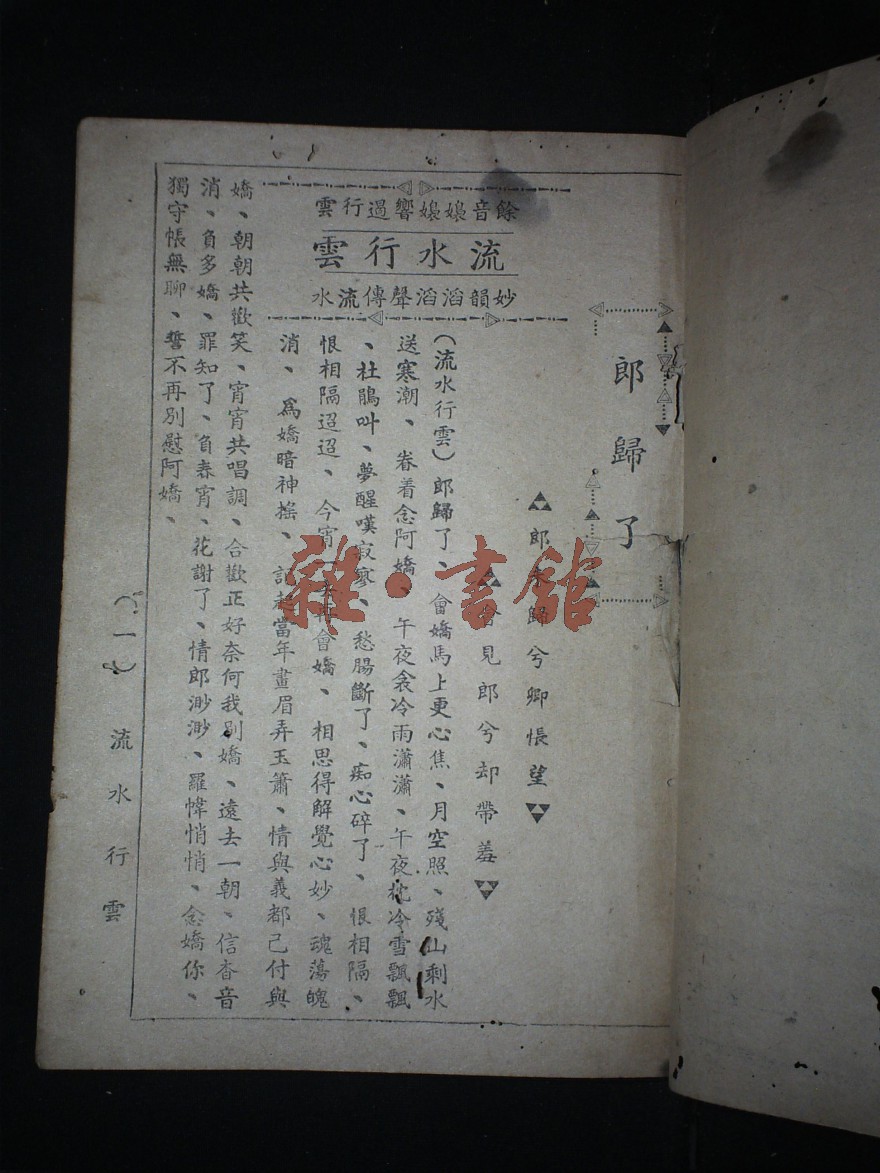 餘音娘娘響遏行雲
流水行雲
妙韻滔滔聲傳流水
郎歸了
郎未歸兮卿悵望
見郎兮却帶羞
(流水行雲)郎歸了、會嬌馬上更心焦、月空照、殘山剩水
送寒潮、眷着念阿嬌、午夜衾冷雨瀟瀟、午夜枕冷雪飄飄
、杜鵑叫、夢醒嘆寂寥、愁腸斷了、痴心碎了、恨相隔、
恨相隔迢迢、今宵會嬌、相思得解覺心妙、魂蕩魄
消、爲嬌暗神搖、記起當年畫眉弄玉簫、情與義都已付與
嬌、朝朝共歡笑、宵宵共唱調、合歡正好奈何我別嬌、遠去一朝、信杳音
消、負多嬌、罪知了、負春宵、花謝了、情郎渺渺、羅幃悄悄、念嬌你、
獨守帳無聊、誓不再別慰阿嬌、
(一)流水行雲
雜·書館